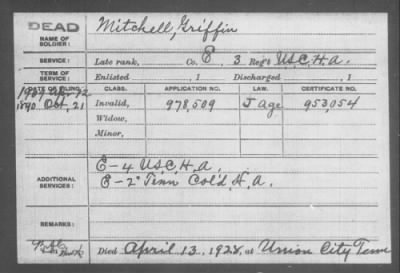 DEAD
NAME OF SOLDIER: Mitchell, Griffin
SERVICE: Late rank, Co. E, 3 Reg't U.S.C.H.A.
TERM OF SERVICE: Enlisted , 1 Discharged , 1
DATE OF FILING. CLASS. APPLICATION NO. LAW. CERTIFICATE NO.
1907 Apr. 12
1890 Oct, 21 Invalid, 978,509 J age 953,054
Widow,
Minor,
ADDITIONAL SERVICES: E-4 U.S.C.H.A.
E-2" Tenn Col'd, H.A.
REMARKS:
Died April 13, 1928, at Union City Tenn